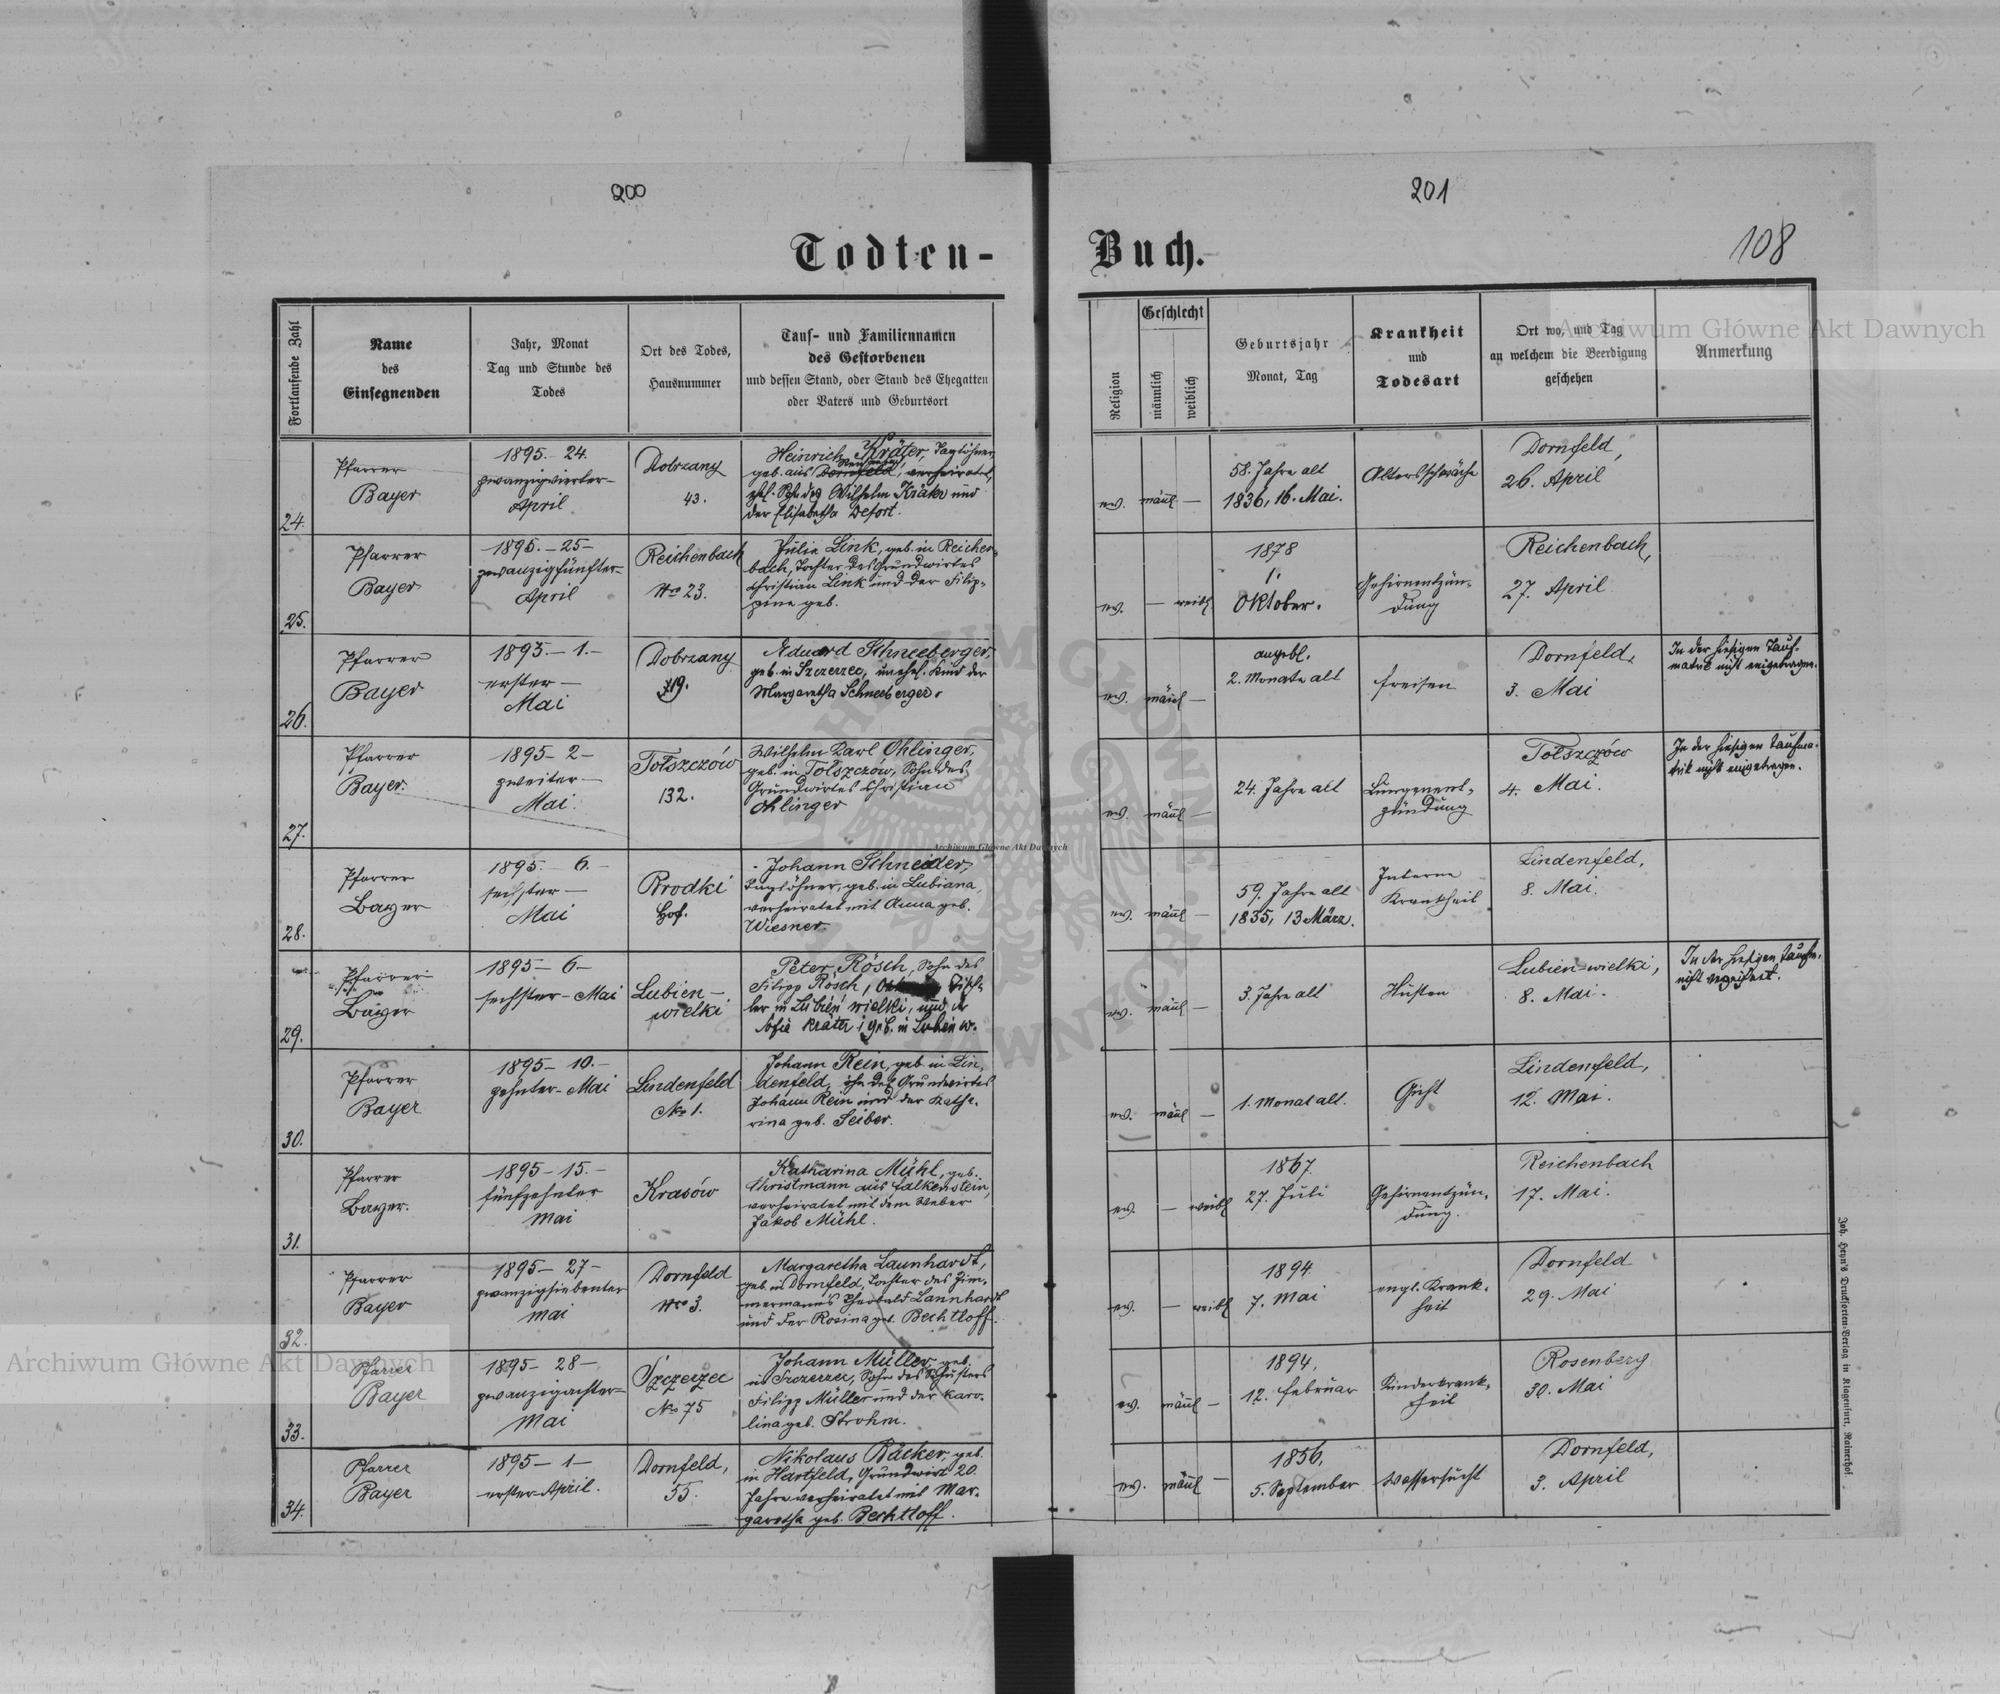 200
201
108
Todten-
Buch.
Fortlaufende Zahl
Name
des
Einsegnenden
Jahr, Monat
Tag und Stunde des
Todes
Ort des Todes,
Hausnummer
Tauf- und Familiennamen
des Gestorbenen
und dessen Stand, oder Stand des Ehegatten
oder Vaters und Geburtsort
Religion
Geschlecht
männlich
weiblich
Geburtsjahr
Monat, Tag
Krankheit
und
Todesart
Ort wo, und Tag
an welchem die Beerdigung
geschehen
Anmerkung
24.
Pfarrer
Bayer
1895.- 24.
zwanzigvierter-
April
Dobrzany
43.
Heinrich Kräter, Taglöhner,
geb. aus Dornfeld, verheiratet,
Wilhelm Kräter und
der Elisabetha Defort.
ev. männl —
58. Jahre alt
1836, 16. Mai.
Altersschwäche
Dornfeld,
26. April
25.
Pfarrer
Bayer
1895.- 25-
zwanzigfünfter-
April
Reichenbach
No 23.
Julie Link, geb. in Reichen-
bach, Tochter des Grundwirtes
Christian Link und der Filip-
pine geb.
ev. — weibl
1878
1.
Oktober.
Gehirnentzün-
dung
Reichenbach,
27. April
26.
Pfarrer
Bayer
1895.- 1.-
erster-
Mai
Dobrzany
19.
Eduard Schneeberger,
geb. in Szczerzec, unehel. Kind der
Margaretha Schneeberger.
ev. männl —
angebl.
2. Monate alt
Freisen
Dornfeld,
3. Mai
In der hiesigen Tauf-
matrik nicht eingetragen.
27.
Pfarrer
Bayer.
1895- 2-
zweiter-
Mai.
Tołszczów
132.
Wilhelm Karl Ohlinger,
geb. in Tołszczów, Sohn des
Grundwirtes Christian
Ohlinger
ev. männl —
24. Jahre alt
Lungenent-
zündung
Tołszczów
4. Mai.
In der hiesigen Taufma-
trik nicht eingetragen.
28.
Pfarrer
Bayer
1895.- 6.
sechster-
Mai
Brodki
Hof.
Johann Schneider,
Taglöhner, geb. in Lubiana,
verheiratet mit Anna geb.
Wiesner.
ev. männl —
59. Jahre alt
1835, 13 März.
Interne
Krankheit
Lindenfeld,
8. Mai.
29.
Pfarrer
Bayer
1895- 6-
sechster- Mai
Lubien-
wielki
Peter Rösch, Sohn des
Filipp Rösch, Tisch-
ler in Lubień wielki, und der
Sofie Kräter, geb. in Lubien w.
ev. männl —
3. Jahre alt
Husten
Lubien wielki,
8. Mai.
In der hiesigen Taufm.
nicht
30.
Pfarrer
Bayer
1895- 10.-
zehnter- Mai
Lindenfeld
No 1.
Johann Rein, geb in Lin-
denfeld, des Grundwirtes
Johann Rein und der Katha-
rina geb. Seiber.
ev. männl —
1. Monat alt.
Gicht
Lindenfeld,
12. Mai.
31.
Pfarrer
Bayer.
1895- 15.-
fünfzehnter
Mai
Krasów
Katharina Mühl, geb.
Christmann aus Falkenstein,
verheiratet mit dem Weber
Jakob Mühl.
ev. — weibl
1867.
27. Juli
Gehirnentzün-
dung.
Reichenbach
17. Mai.
32.
Pfarrer
Bayer
1895- 27-
zwanzigsiebenter
Mai
Dornfeld
No 3.
Margaretha Launhardt,
geb. in Dornfeld, Tochter des Zim-
mermanns Launhardt
und der Rosina geb. Bechtloff.
ev. — weibl
1894.
7. Mai
engl. Krank-
heit
Dornfeld
29. Mai
33.
Pfarrer
Bayer
1895- 28-
zwanzigachter-
Mai
Szczerzec
No 75
Johann Müller, geb.
in Szczerzec, Sohn des Schusters
Filipp Müller und der Karo-
lina geb. Strohm.
ev. männl —
1894.
12. Februar
Kinderkrank-
heit
Rosenberg
30. Mai
34.
Pfarrer
Bayer
1895- 1-
erster-April.
Dornfeld,
55.
Nikolaus Bäcker, geb.
in Hartfeld, Grundwirt 20.
Jahre verheiratet mit Mar-
garetha geb. Bechtloff.
ev. männl —
1856.
5. September
Wassersucht
Dornfeld,
3. April
Joh. Heyn's Drucksorten-Verlag in Klagenfurt, Rainerhof.
Archiwum Główne Akt Dawnych
Archiwum Główne Akt Dawnych
Archiwum Główne Akt Dawnych